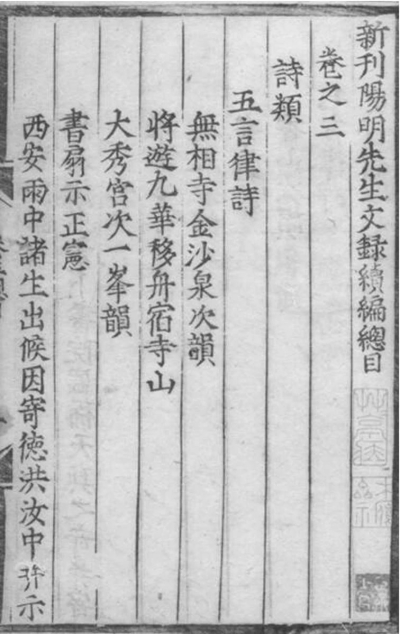 新刊陽明先生文録續編總目
卷之三
詩類
五言律詩
無相寺金沙泉次韻
將遊九華移舟宿寺山
大秀宮次一峯韻
書扇示正憲
西安雨中諸生出候因寄德洪汝中幷示